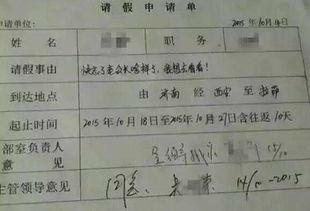 请假申请单
申请单位： 2015年10月14日
姓名 职务
请假事由 快忘了老公长啥样了，我想去看看！
到达地点 由 济南 经 西安 至
起止时间 2015年10月18日至2015年10月27日含往返10天
部室负责人意见 15/10
主管领导意见 同意、 14/10-2015